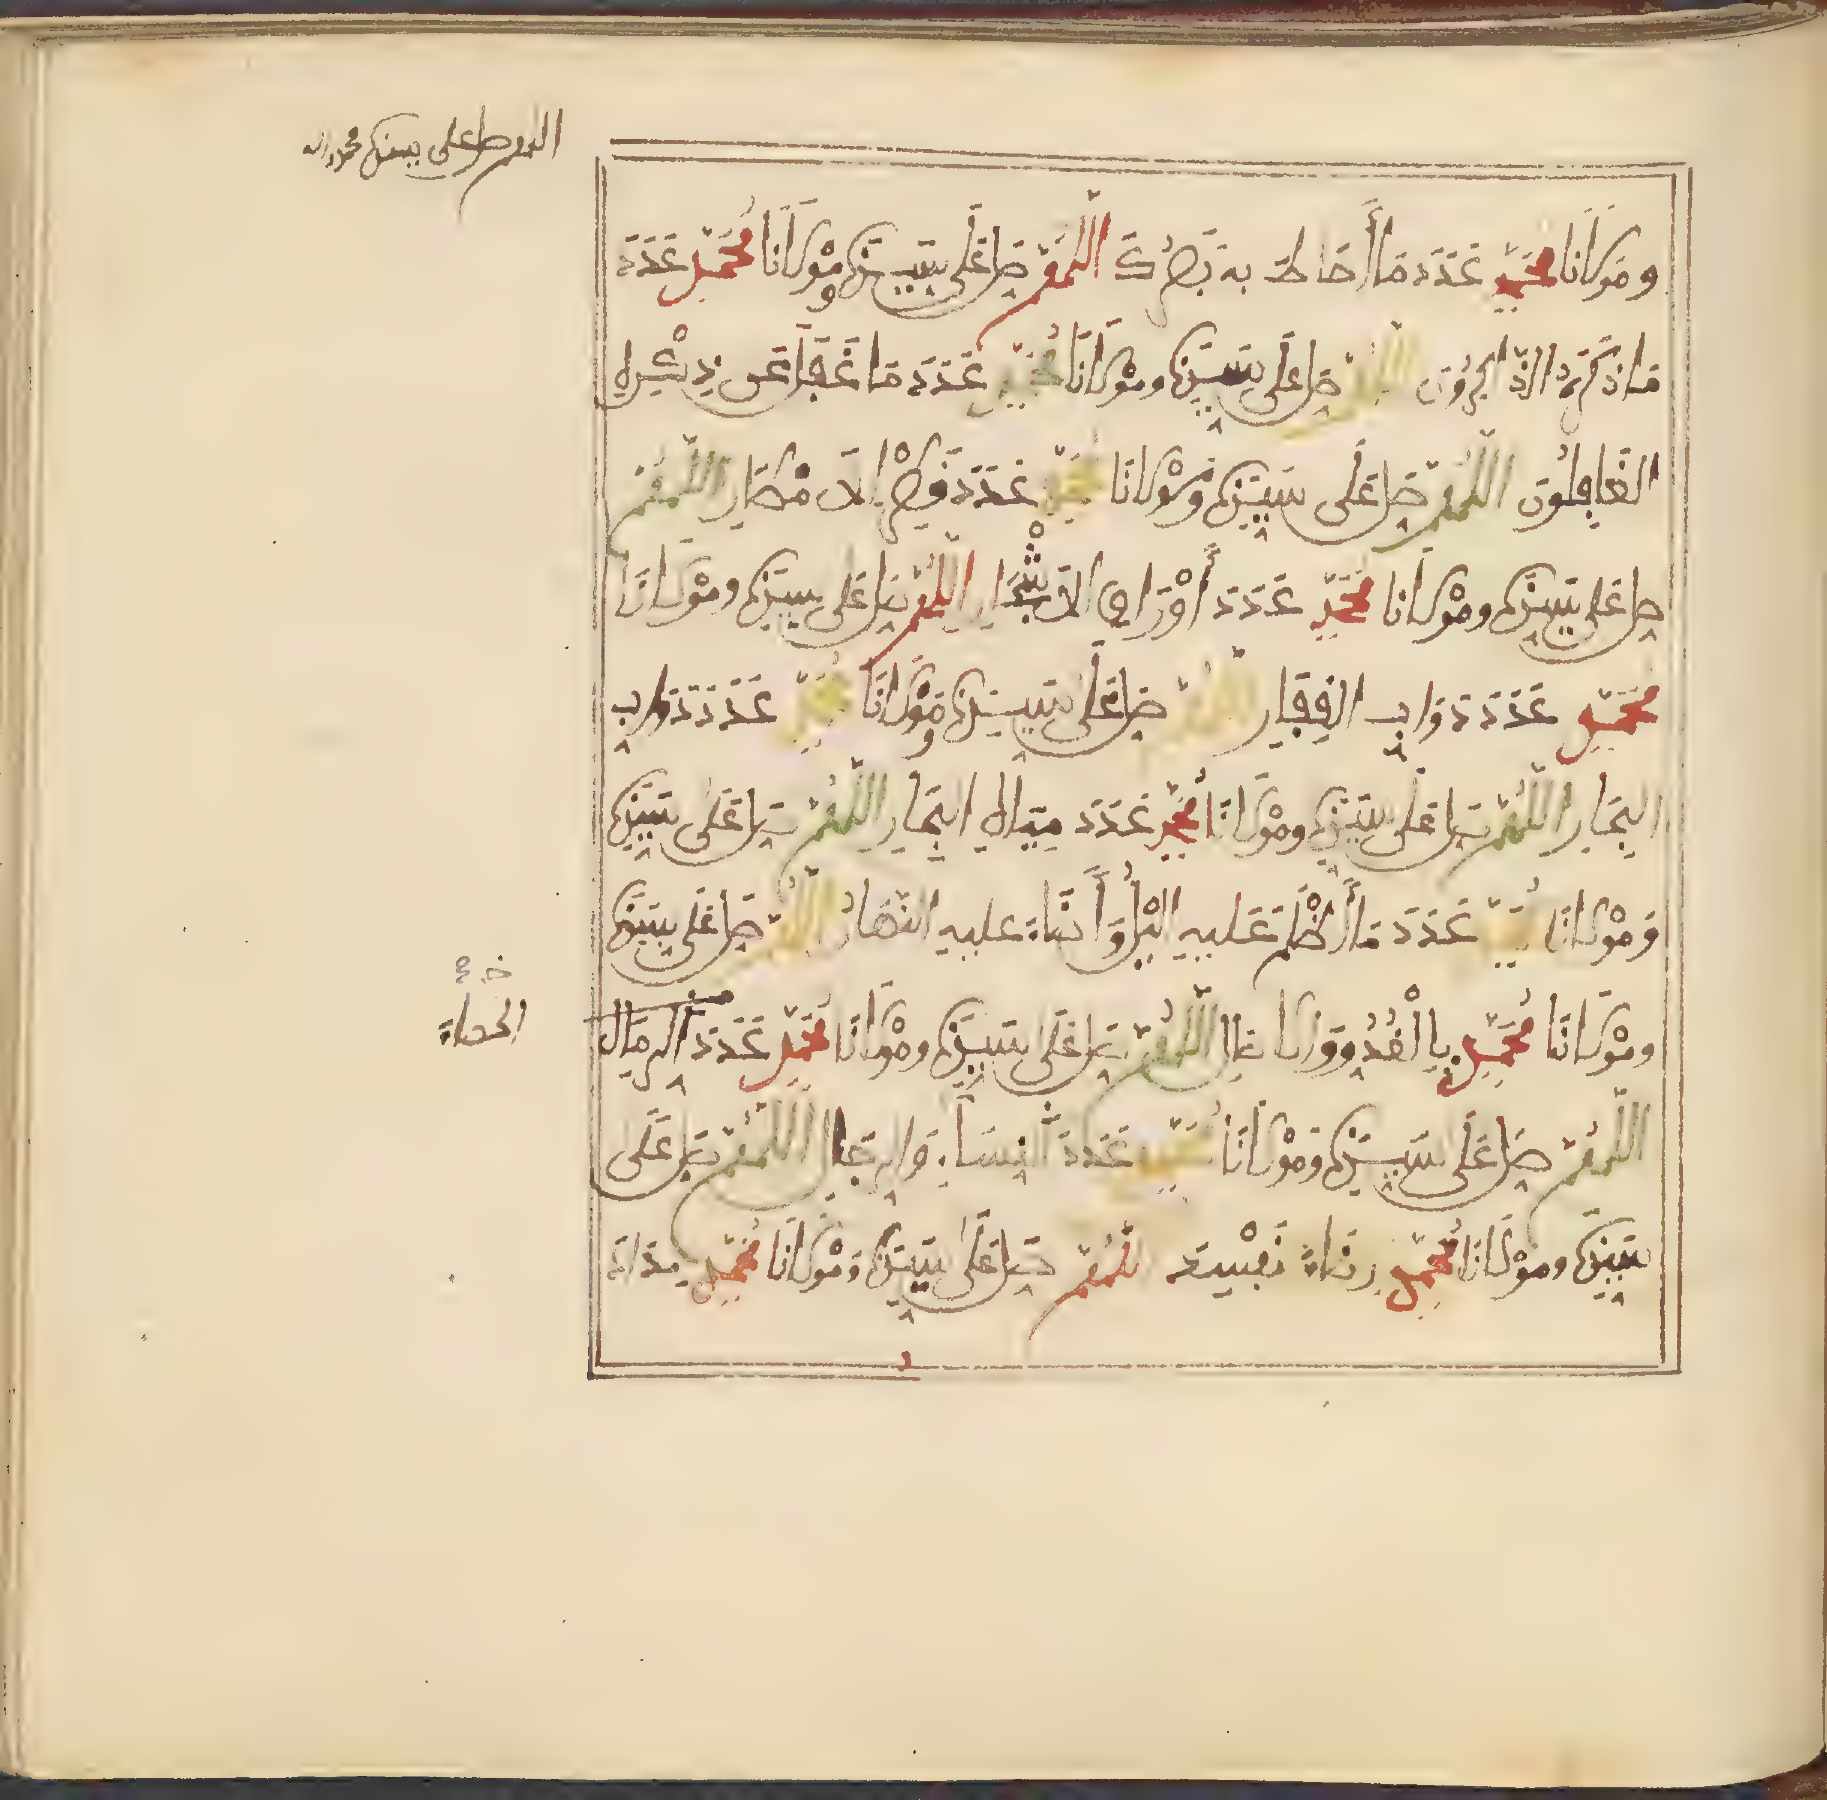 اللهم صل على سيدنا محمد
وَمَوْلَانَا مُحَمَّدٍ عَدَدَ مَا أَحَاطَ بِهِ بَصَرُكَ اللَّهُمَّ صَلِّ عَلَى سَيِّدِنَا وَمَوْلَانَا مُحَمَّدٍ عَدَدَ
مَا ذَكَرَهُ الذَّاكِرُونَ اللَّهُمَّ صَلِّ عَلَى سَيِّدِنَا وَمَوْلَانَا مُحَمَّدٍ عَدَدَ مَا غَفَلَ عَن ذِكْرِهِ
الْغَافِلُونَ اللَّهُمَّ صَلِّ عَلَى سَيِّدِنَا وَمَوْلَانَا مُحَمَّدٍ عَدَدَ قَطْرِ الَامْطَارِ اللَّهُمَّ
صَلِّ عَلَى سَيِّدِنَا وَمَوْلَانَا مُحَمَّدٍ عَدَدَ أَوْرَاقِ الَاشْجَارِ اللَّهُمَّ صَلِّ عَلَى سَيِّدِنَا وَمَوْلَانَا
مُحَمَّدٍ عَدَدَ دَوَابِّ الْقِفَارِ اللَّهُمَّ صَلِّ عَلَى سَيِّدِنَا وَمَوْلَانَا مُحَمَّدٍ عَدَدَ دَوَابِّ
الْبِحَارِ اللَّهُمَّ صَلِّ عَلَى سَيِّدِنَا وَمَوْلَانَا مُحَمَّدٍ عَدَدَ مِيَاهِ الْبِحَارِ اللَّهُمَّ صَلِّ عَلَى سَيِّدِنَا
وَمَوْلَانَا مُحَمَّدٍ عَدَدَ مَا أَظْلَمَ عَلَيْهِ الَّيْلُ وَأَضَاءَ عَلَيْهِ النَّهَارُ اللَّهُمَّ صَلِّ عَلَى سَيِّدِنَا
وَمَوْلَانَا مُحَمَّدٍ بِالْغُدُوِّ وَالَاصَالِ اللَّهُمَّ صَلِّ عَلَى سَيِّدِنَا وَمَوْلَانَا مُحَمَّدٍ عَدَدَ الرِّمَالِ
اللَّهُمَّ صَلِّ عَلَى سَيِّدِنَا وَمَوْلَانَا مُحَمَّدٍ عَدَدَ النِّسَاءِ وَالرِّجَالِ اللَّهُمَّ صَلِّ عَلَى
سَيِّدِنَا وَمَوْلَانَا مُحَمَّدٍ رِضَاءَ نَفْسِكَ اللَّهُمَّ صَلِّ عَلَى سَيِّدِنَا وَمَوْلَانَا مُحَمَّدٍ مِدَادَ